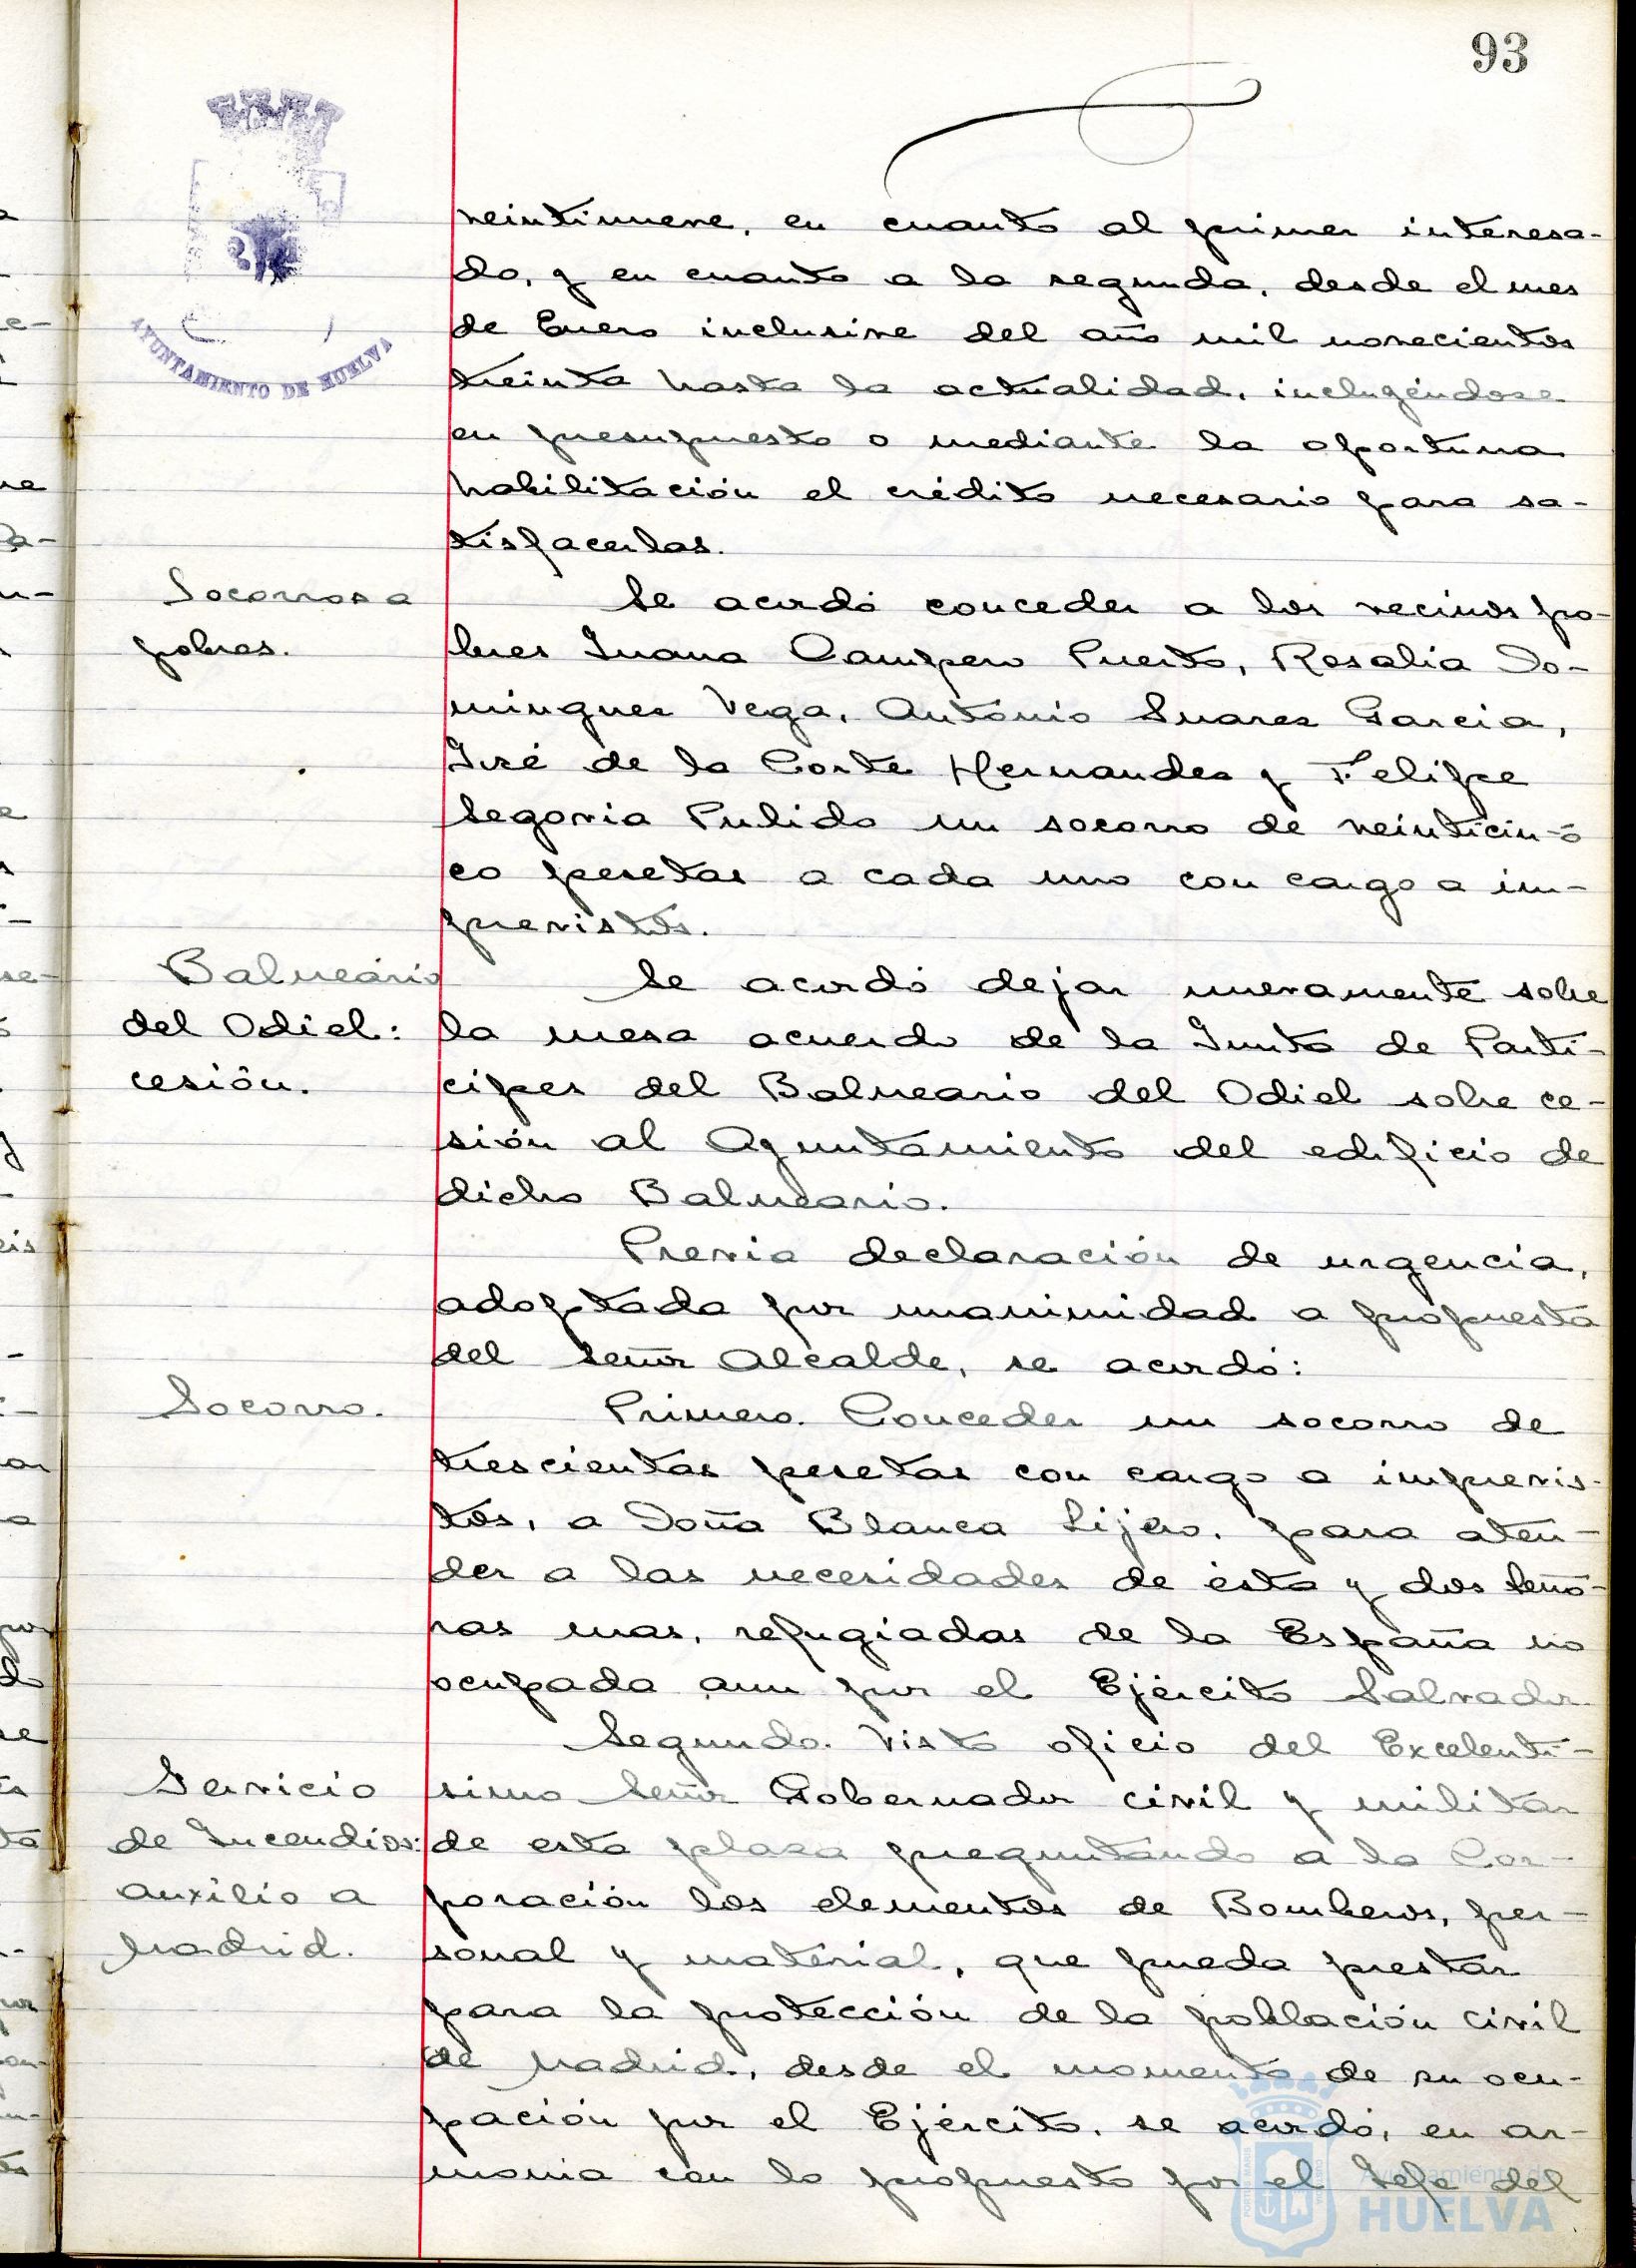 93
AYUNTAMIENTO DE HUELVA
veintinueve, en cuanto al primer interesa-
do, y en cuanto a la segunda, desde el mes
de Enero inclusive del año mil novecientos
treinta hasta la actualidad, incluyéndose
en presupuesto o mediante la oportuna
habilitación el crédito necesario para sa-
tisfacerlas.
Socorros a
pobres.
Se acordó conceder a los vecinos po-
bres Juana Campero Puerto, Rosalia Do-
minguez Vega, António Suarez Garcia,
José de la Corte Hernandez y Felipe
Segovia Pulido un socorro de veinticin-
co pesetas a cada uno con cargo a im-
previstos.
Balneário
del Odiel:
cesión.
Se acordó dejar nuevamente sobre
la mesa acuerdo de la Junta de Partí-
cipes del Balneario del Odiel sobre ce-
sión al Ayuntamiento del edificio de
dicho Balneario.
Previa declaración de urgencia,
adoptada por unanimidad a propuesta
del Señor Alcalde, se acordó:
Socorro.
Primero. Conceder un socorro de
trescientas pesetas con cargo a imprevis-
tos, a Doña Blanca Lijero, para aten-
der a las necesidades de ésta y dos Seño-
ras mas, refugiadas de la España no
ocupada aun por el Ejército Salvador.
Servicio
de Incendios:
auxilio a
Madrid.
Segundo. Visto oficio del Excelentí-
simo Señor Gobernador civil y militar
de esta plaza preguntando a la Cor-
poración los elementos de Bomberos, per-
sonal y material, que pueda prestar
para la protección de la población civil
de Madrid, desde el momento de su ocu-
pación por el Ejército, se acordó, en ar-
monia con lo propuesto por el Jefe del
Ayuntamiento de
HUELVA